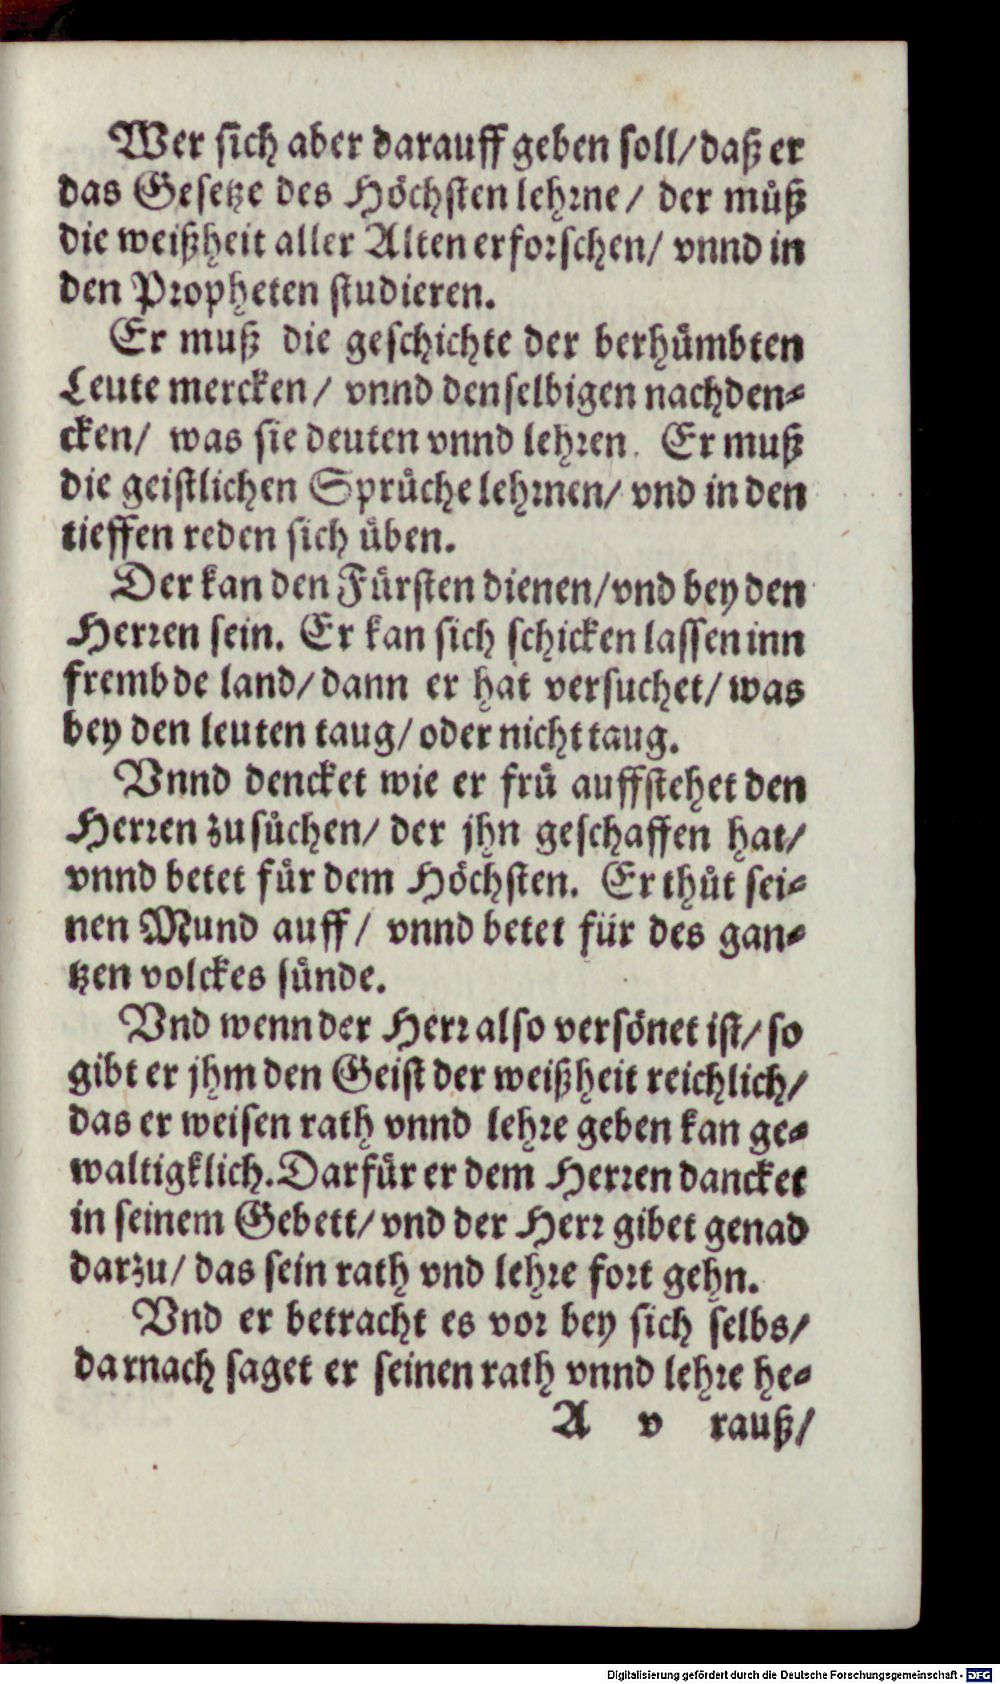 Wer sich aber darauff geben soll/ daß er
das Gesetze des Höchsten lehrne/ der muͦß
die weißheit aller Alten erforschen/ vnnd in
den Propheten studieren.
Er muß die geschichte der berhuͤmbten
Leute mercken/ vnnd denselbigen nachden-
cken/ was sie deuten vnnd lehren. Er muß
die geistlichen Spruͤche lehrnen/ vnd in den
tieffen reden sich uͤben.
Der kan den Fuͤrsten dienen/ vnd bey den
Herren sein. Er kan sich schicken lassen inn
frembde land/ dann er hat versuchet/ was
bey den leuten taug/ oder nicht taug.
Vnnd dencket wie er fruͤ auffstehet den
Herren zu suͤchen/ der jhn geschaffen hat/
vnnd betet fuͤr dem Höchsten. Er thuͦt sei-
nen Mund auff/ vnnd betet für des gan-
tzen volckes suͤnde.
Vnd wenn der Herr also versönet ist/ so
gibt er jhm den Geist der weißheit reichlich/
das er weisen rath vnnd lehre geben kan ge-
waltigklich. Darfuͤr er dem Herren dancket
in seinem Gebett/ vnd der Herr gibet genad
darzu/ das sein rath vnd lehre fort gehn.
Vnd er betracht es vor bey sich selbs/
darnach saget er seinen rath vnnd lehre he-
A v rauß/
Digitalisierung gefördert durch die Deutsche Forschungsgemeinschaft - DFG